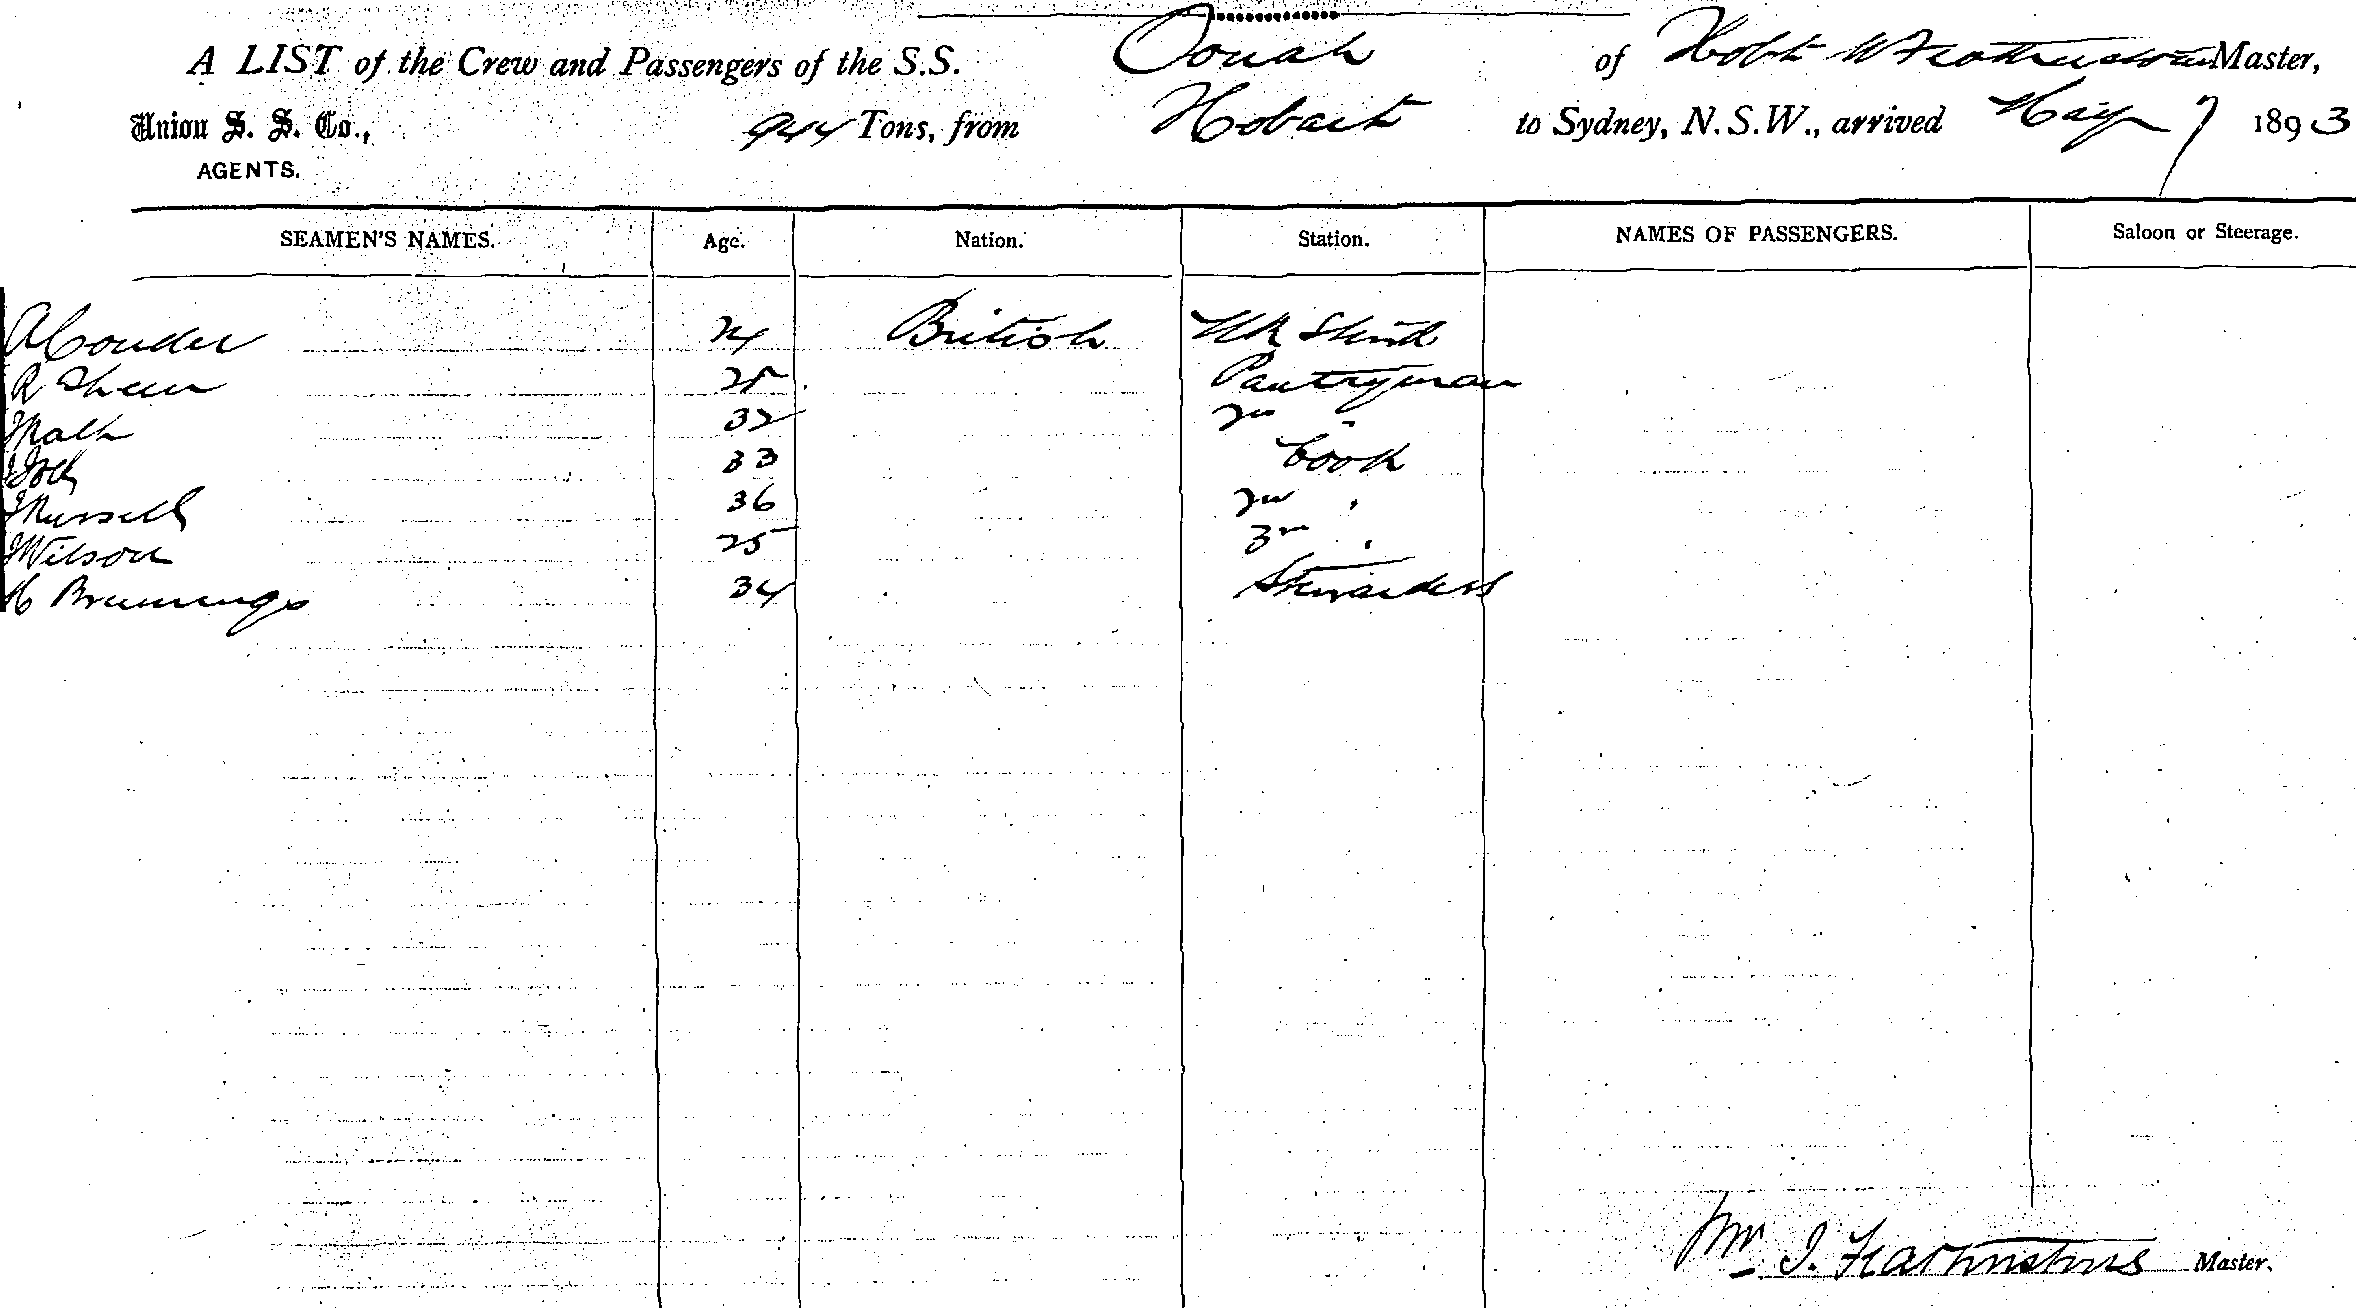 A LIST of the Crew and Passengers of the S.S. Oonah of Hobt W Featherstone Master,
Union S. S. Co., 944 Tons, from Hobart to Sydney, N.S.W., arrived May 7 1893
AGENTS.
SEAMEN'S NAMES. Age. Nation. Station. NAMES OF PASSENGERS. Saloon or Steerage.
A Conder 24 British
R Sheen 25 Pantryman
32 2n "
33 Cook
Russell 36 2n "
Wilson 25 3r "
H Brummings 34 Stewardess
Featherstone Master.